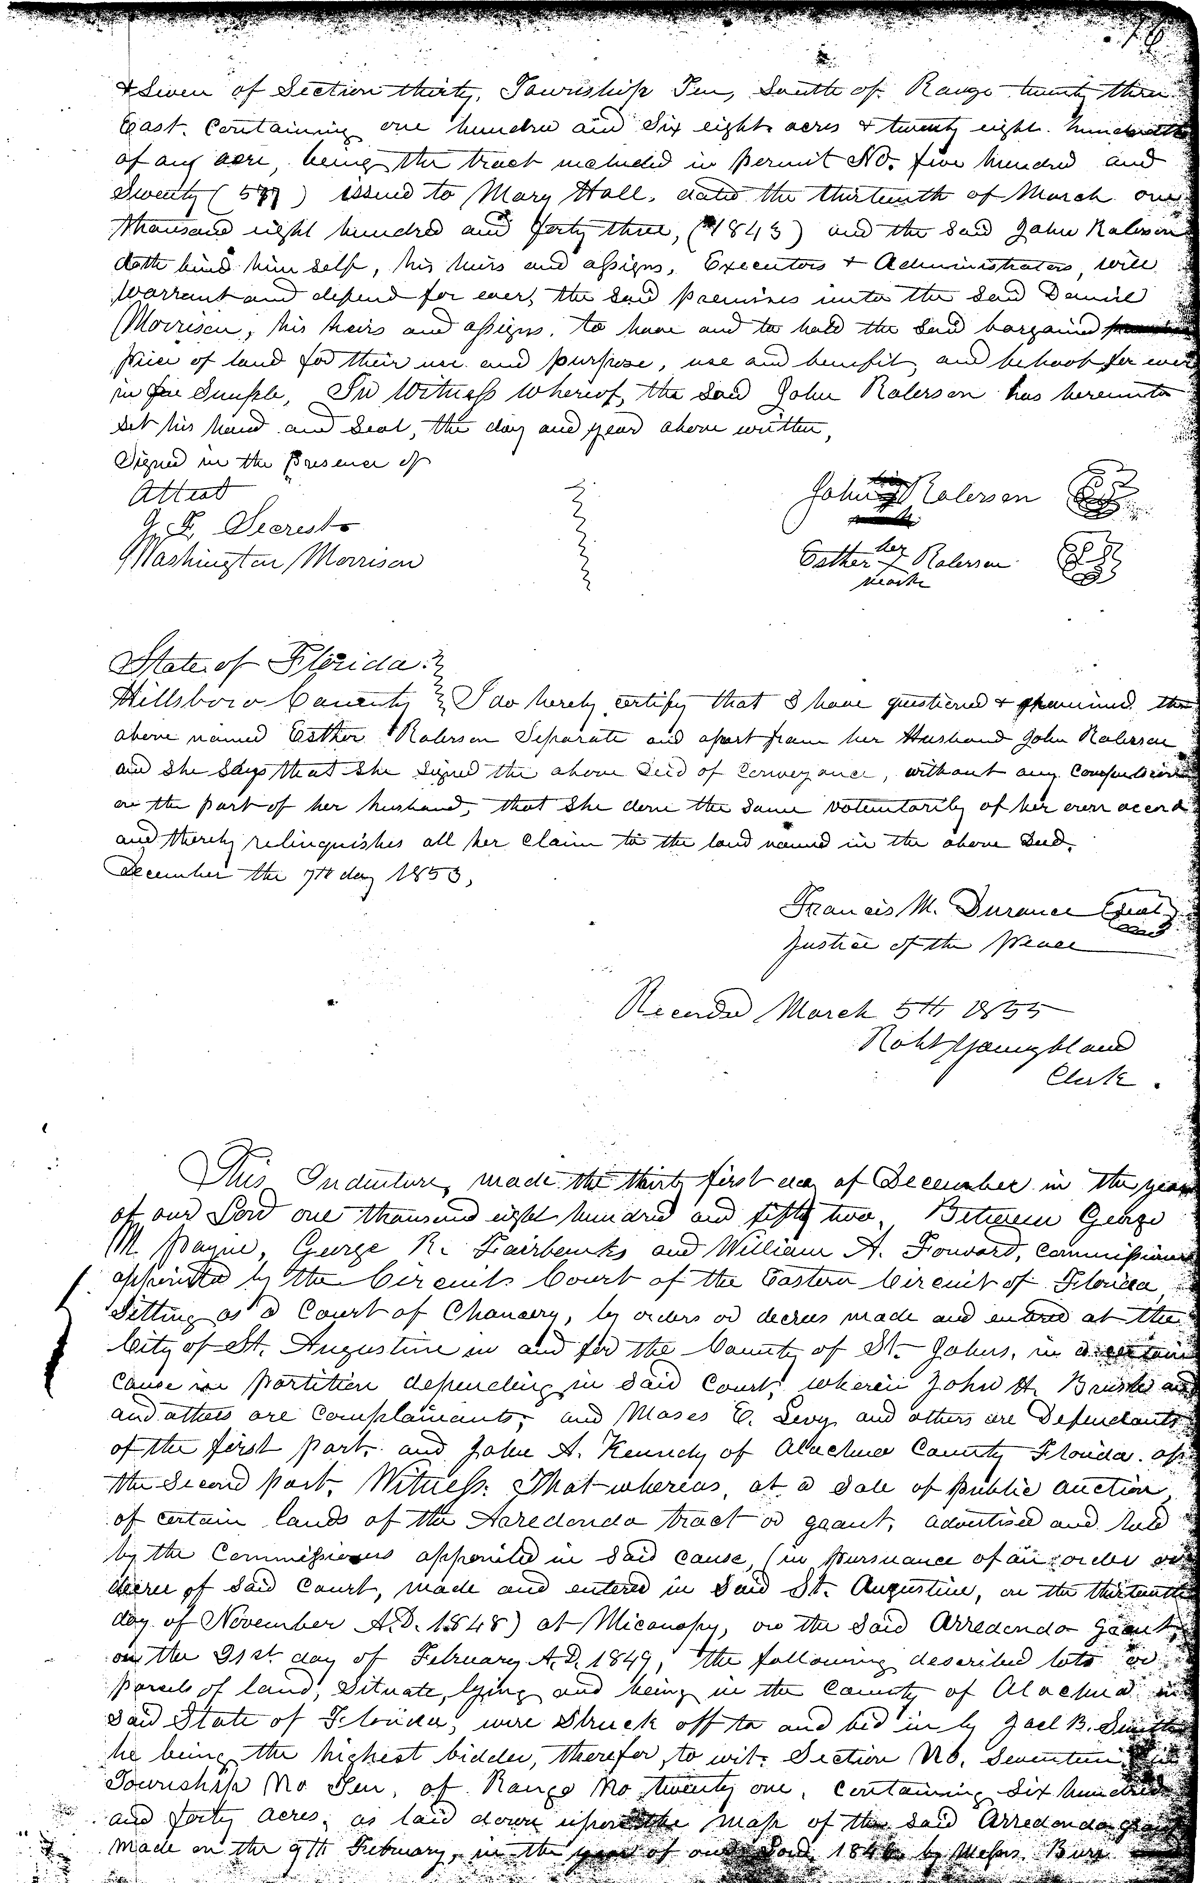 16
& Seven of Section thirty, Township Ten, South of Range twenty three
East. Containing one hundred and Six eight acres & twenty eight hundredths
of any acre, being the tract included in permit No. five hundred and
Twenty ( ) issued to Mary Hall, dated the thirteenth of March one
thousand eight hundred and forty three, (1843) and the said John Ralerson
doth bind him self, his heirs and assigns, Executors & Administrators, will
Warrant and depend for ever, the said premises unto the said Daniel
Morrison, his heirs and assigns. to have and to hold the said bargained
piece of land for their use and purpose, use and benefit, and behoof for ever
in fee Simple, In Witness whereof, the said John Ralerson has hereunto
set his hand and seal, the day and year above written,
Signed in the presence of
Attest
J. F. Secrest
Washington Morrison
John Ralerson
Esther her x mark Ralerson
State of Florida
Hillsboro County I do hereby certify that I have questioned & examined the
above named Esther Ralerson Separate and apart from her Husband John Ralerson
and she says that she signed the above Deed of Conveyance, without any compulsion
on the part of her husband, that she done the same voluntarily of her own accord
and thereby relinquishes all her claim to the land named in the above Deed.
December the 7th day 1853,
Francis M. Durance Seal
Justice of the Peace
Recorded March 5th 1855
Robt Youngblood
Clerk.
This Indenture, made the thirty first day of December in the year
of our Lord one thousand eight hundred and fifty two, Between George
M. Payne, George R. Fairbanks and William A. Forward, Commissioners
appointed by the Circuit Court of the Eastern Circuit of Florida,
Sitting as a Court of Chancery, by orders or decrees made and entered at the
City of St. Augustine in and for the County of St. Johns, in a certain
cause in partition depending in said Court, wherein John H. Brush and
and others are complainants, and Moses E. Levy and others are Defendants
of the first part, and John A. Kennedy of Alachua County Florida. of
the Second part. Witness: That whereas, at a Sale of public auction,
of certain lands of the Arredondo tract or grant, advertised and held
by the Commissioners appointed in said cause, (in pursuance of an order or
decree of said Court, made and entered in said St. Augustine, on the thirteenth
day of November A.D. 1848) at Micanopy, on the said Arredondo Grant,
on the 21st day of February A.D. 1849, the following described lots or
parcels of land, Situate, lying and being in the County of Alachua in
said State of Florida, were Struck off to and bid in by Joel B. Smith
he being the highest bidder, therefor, to wit. Section No. Seventeen in
Township No Ten, of Range No twenty one, containing Six hundred
and forty acres, as laid down upon the map of the said Arredondo grant
made on the 9th February, in the year of our Lord, by Messrs. Burr